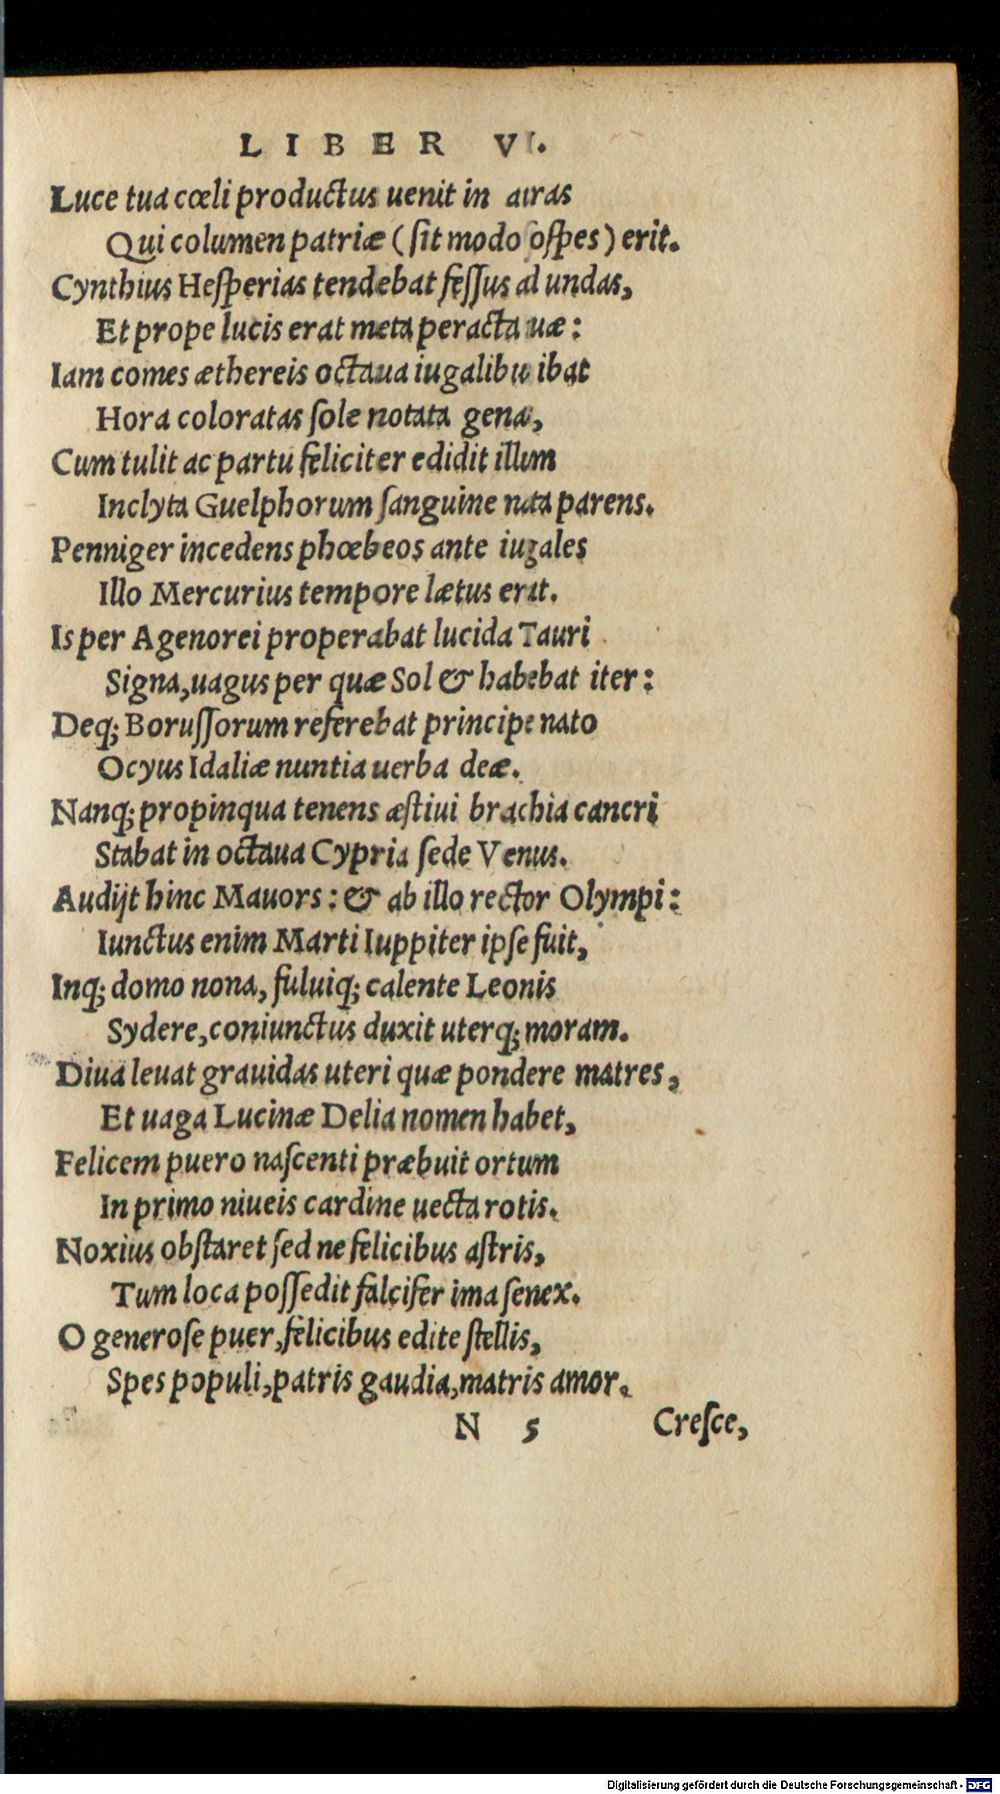 LIBER VI.
Luce tua cœli productus uenit in auras
Qui columen patriæ (ſit modo oſpes) erit.
Cynthius Heſperias tendebat feſſus ad undas,
Et prope lucis erat meta peracta uæ:
Iam comes æthereis octaua iugalibus ibat
Hora coloratas ſole notata genas,
Cum tulit ac partu feliciter edidit illum
Inclyta Guelphorum ſanguine nata parens.
Penniger incedens phœbeos ante iugales
Illo Mercurius tempore lætus erat.
Is per Agenorei properabat lucida Tauri
Signa, uagus per quæ Sol & habebat iter:
Deq; Boruſſorum referebat principe nato
Ocyus Idaliæ nuntia uerba deæ.
Nanq; propinqua tenens æſtiui brachia cancri
Stabat in octaua Cypria ſede Venus.
Audijt hinc Mauors: & ab illo rector Olympi:
Iunctus enim Marti Iuppiter ipſe fuit,
Inq; domo nona, fuluiq; calente Leonis
Sydere, coniunctus duxit uterq; moram.
Diua leuat grauidas uteri quæ pondere matres,
Et uaga Lucinæ Delia nomen habet,
Felicem puero naſcenti præbuit ortum
In primo niueis cardine uecta rotis.
Noxius obſtaret ſed ne felicibus aſtris,
Tum loca poſſedit falcifer ima ſenex.
O generoſe puer, felicibus edite ſtellis,
Spes populi, patris gaudia, matris amor.
N 5 Creſce,
Digitalisierung gefördert durch die Deutsche Forschungsgemeinschaft - DFG